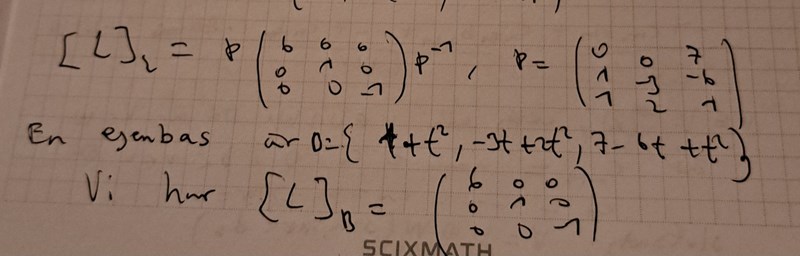 [L]_ε = P (6 0 0; 0 1 0; 0 0 -1) P⁻¹, P = (0 0 7; 1 -3 -6; 1 2 1)
En egenbas är D={ t+t², -3t+2t², 7-6t+t² }
Vi har [L]_B = (6 0 0; 0 1 0; 0 0 -1)
SCIXMATH